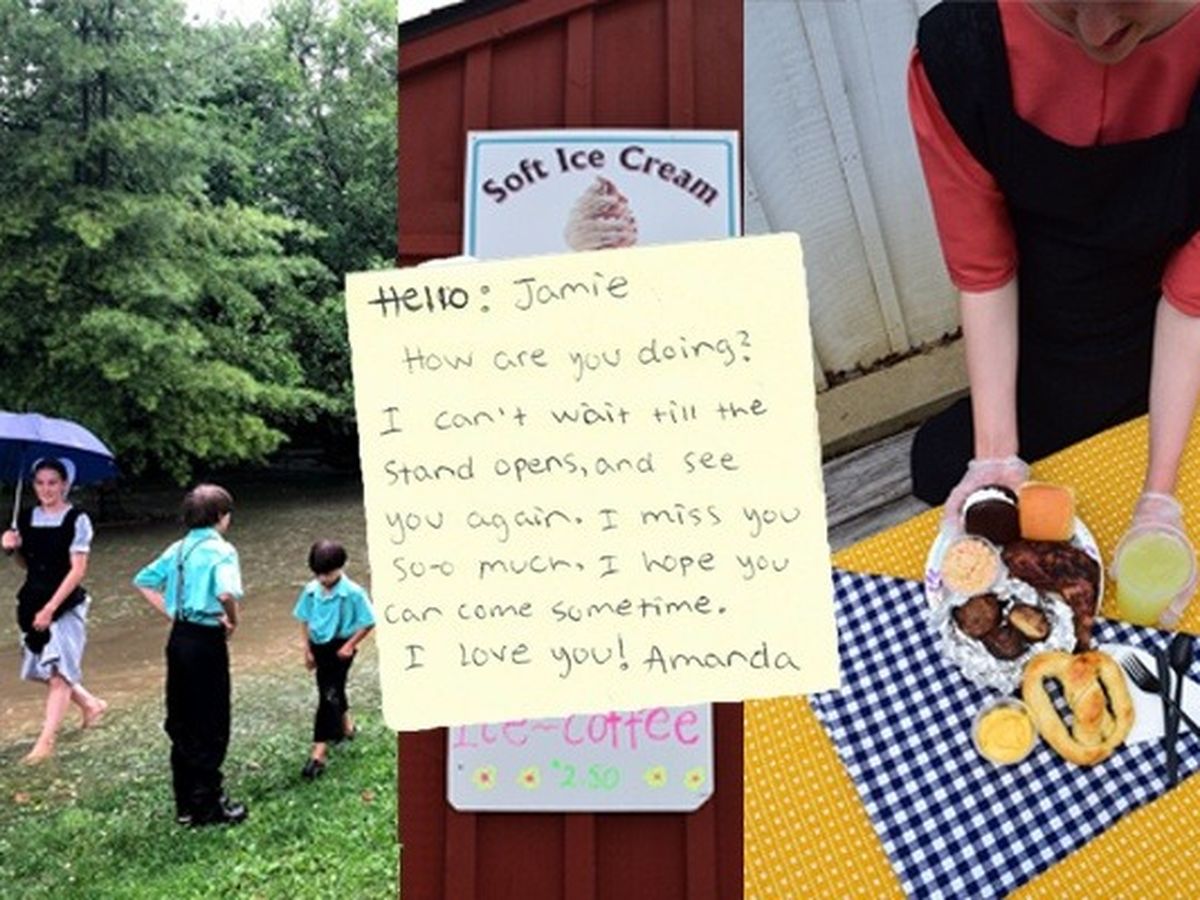 Soft Ice Cream
Hello: Jamie
How are you doing?
I can't wait till the
stand opens, and see
you again. I miss you
so-o much. I hope you
can come sometime.
I love you! Amanda
Ice-Coffee
$2.50